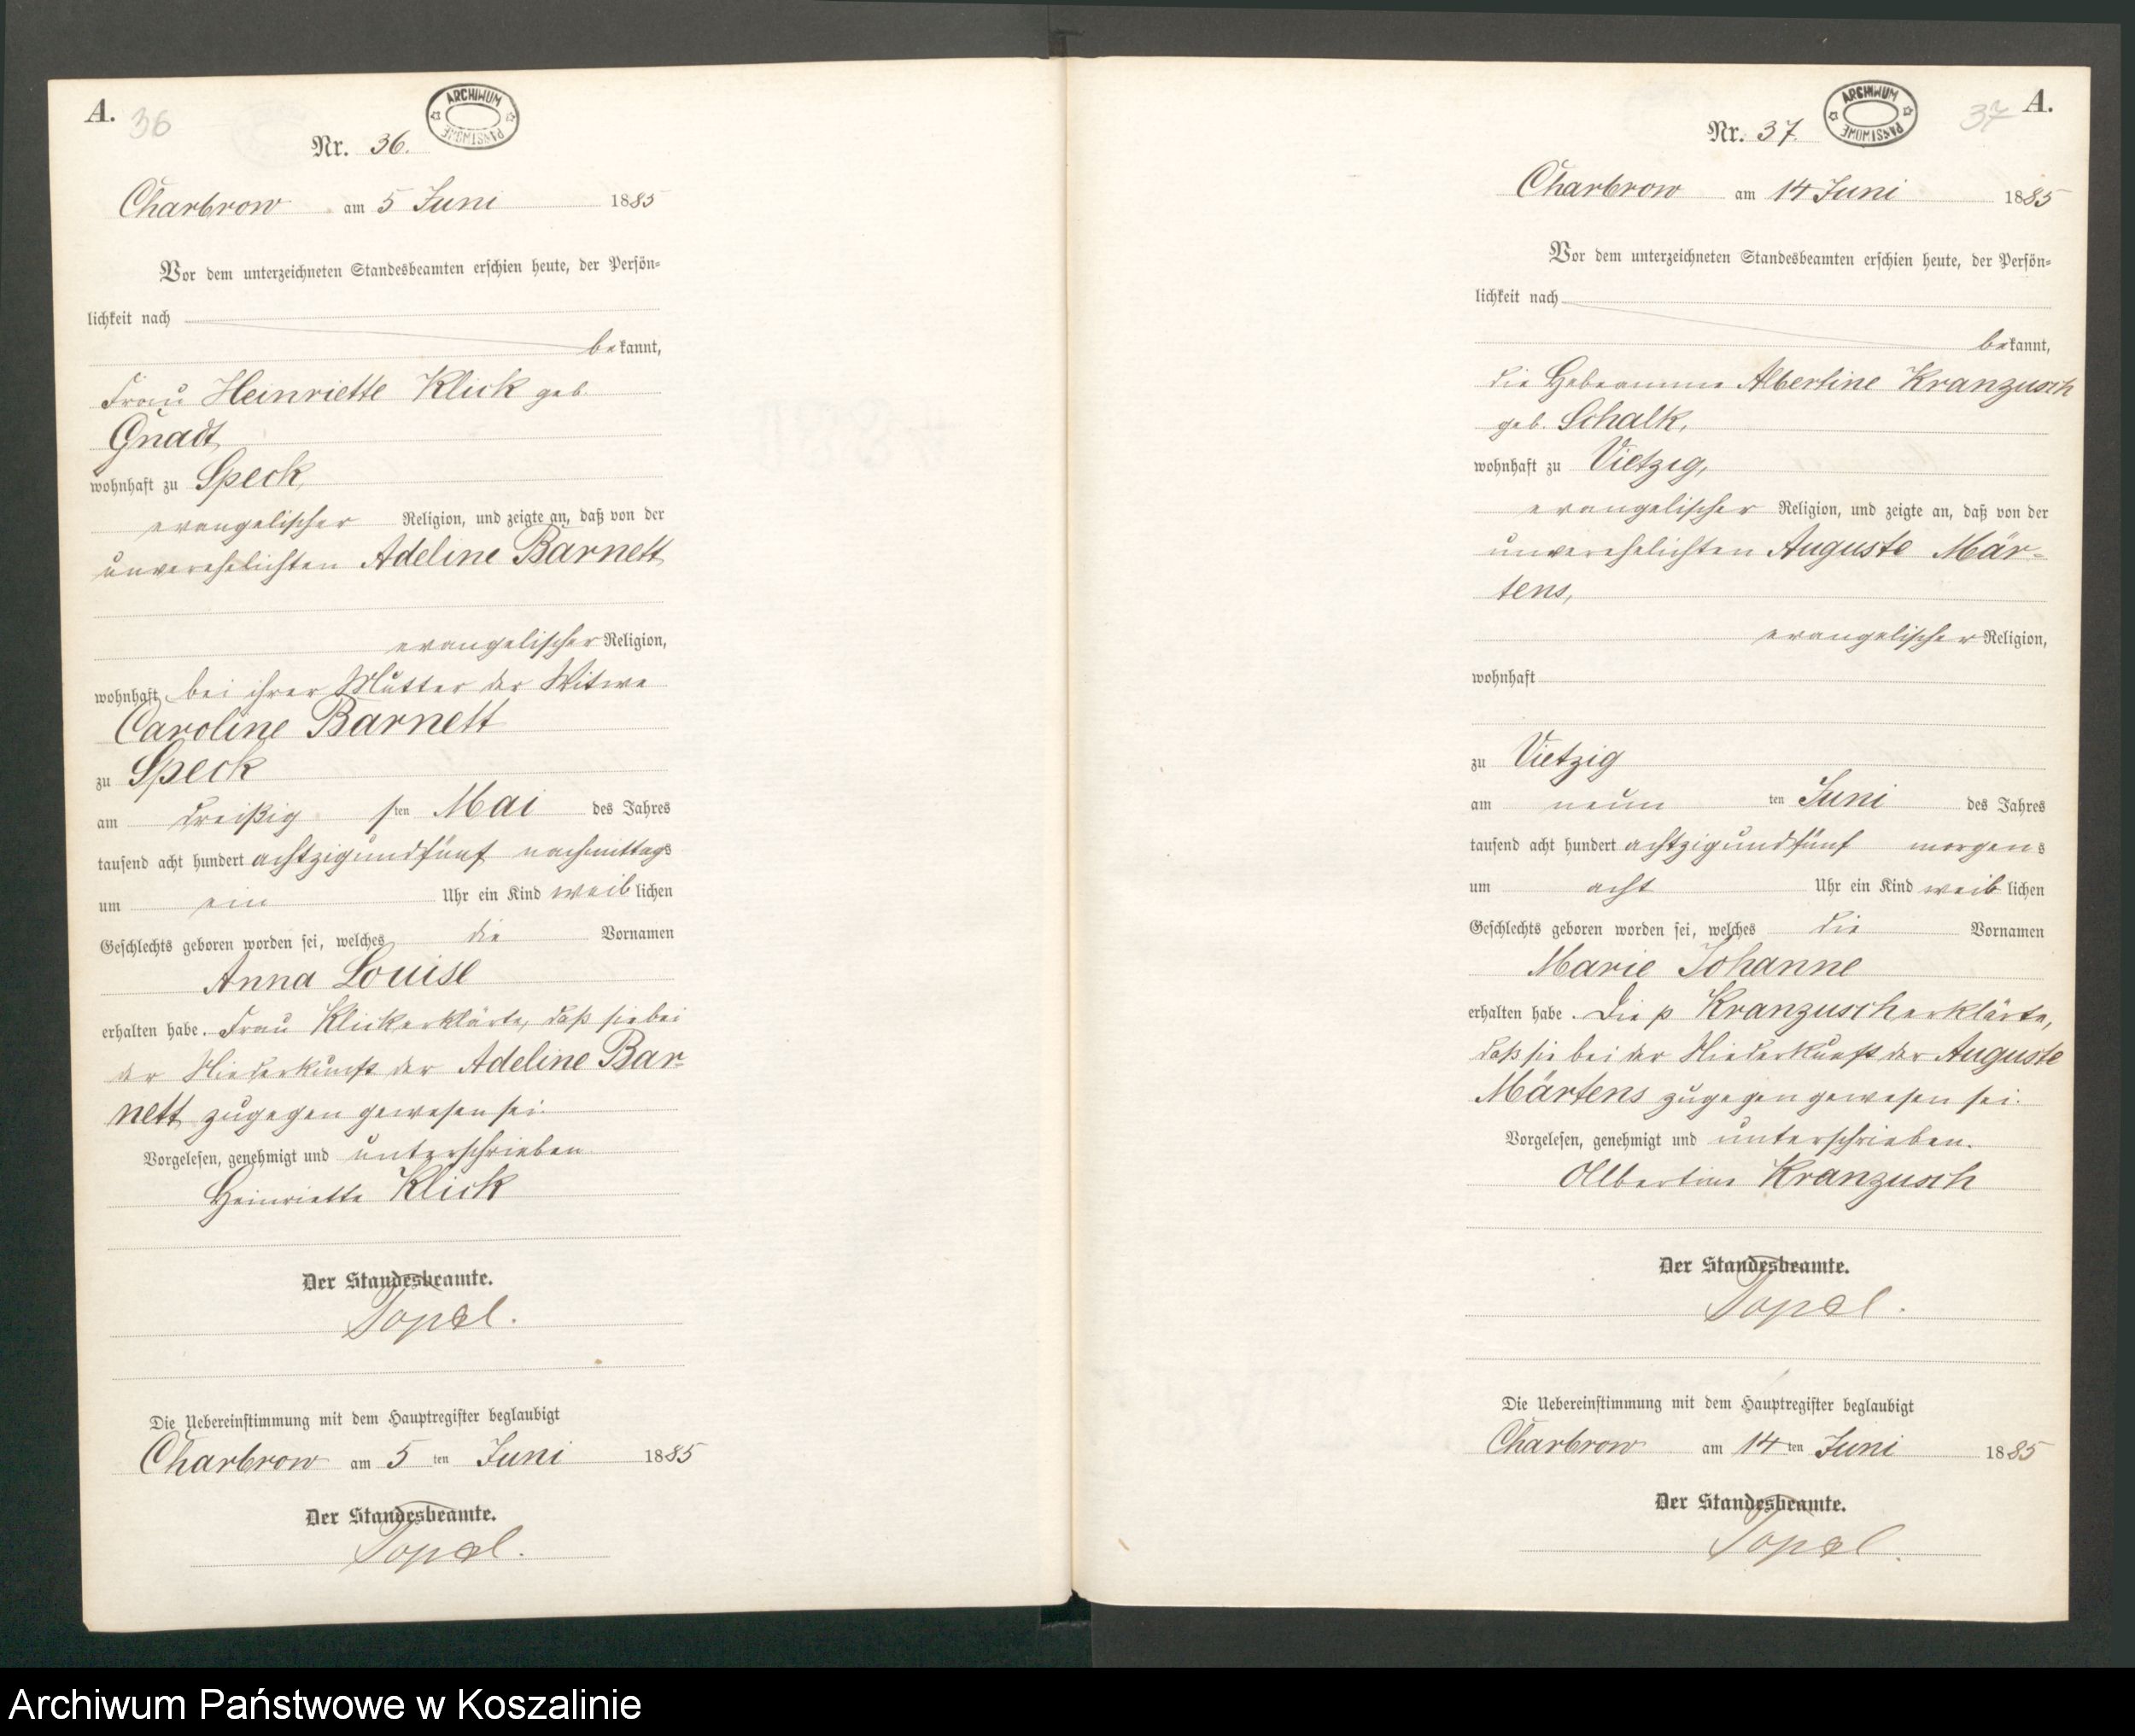 A.
36
ARCHIWUM
PAŃSTWOWE
Nr. 36.
Charbrow am 5 Juni 1885
Vor dem unterzeichneten Standesbeamten erschien heute, der Persön-
lichkeit nach
bekannt,
Frau Heinriette Klick geb
Gnadt,
wohnhaft zu Speck,
evangelischer Religion, und zeigte an, daß von der
unverehelichten Adeline Barnett
evangelischer Religion,
wohnhaft bei ihrer Mutter der Witwe
Caroline Barnett
zu Speck
am dreißig sten Mai des Jahres
tausend acht hundert achtzigundfünf nachmittags
um ein Uhr ein Kind weiblichen
Geschlechts geboren worden sei, welches die Vornamen
Anna Louise
erhalten habe. Frau Klick erklärte, daß sie bei
der Niederkunft der Adeline Bar-
nett zugegen gewesen sei.
Vorgelesen, genehmigt und unterschrieben
Heinriette Klick
Der Standesbeamte.
Topel.
Die Uebereinstimmung mit dem Hauptregister beglaubigt
Charbrow am 5 ten Juni 1885
Der Standesbeamte.
Topel.
37
A.
ARCHIWUM
PAŃSTWOWE
Nr. 37.
Charbrow am 14 Juni 1885
Vor dem unterzeichneten Standesbeamten erschien heute, der Persön-
lichkeit nach
bekannt,
die Hebeamme Albertine Kranzusch
geb. Schalk,
wohnhaft zu Vietzig,
evangelischer Religion, und zeigte an, daß von der
unverehelichten Auguste Mär-
tens,
evangelischer Religion,
wohnhaft
zu Vietzig
am neun ten Juni des Jahres
tausend acht hundert achtzigundfünf morgens
um acht Uhr ein Kind weiblichen
Geschlechts geboren worden sei, welches die Vornamen
Marie Johanne
erhalten habe. Die p Kranzusch erklärte,
daß sie bei der Niederkunft der Auguste
Märtens zugegen gewesen sei.
Vorgelesen, genehmigt und unterschrieben.
Albertine Kranzusch
Der Standesbeamte.
Topel.
Die Uebereinstimmung mit dem Hauptregister beglaubigt
Charbrow am 14 ten Juni 1885
Der Standesbeamte.
Topel.
Archiwum Państwowe w Koszalinie